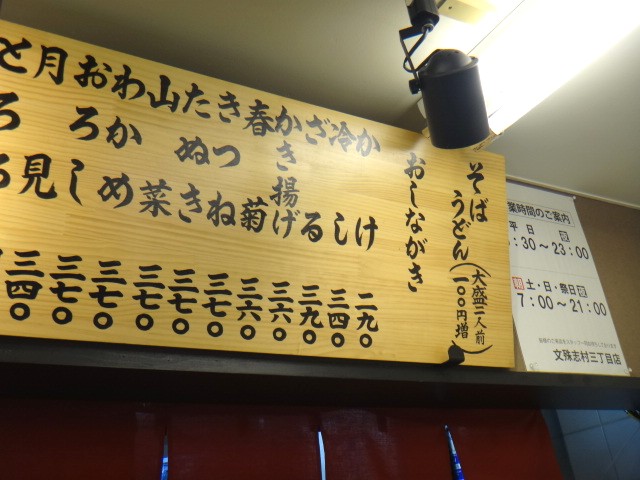 そば
うどん
(大盛二人前
一〇〇円増)
おしながき
かけ 二九〇
冷し 三四〇
ざる 三九〇
かき揚げ 三六〇
春菊 三六〇
きつね 三七〇
たぬき 三七〇
山菜 三七〇
わかめ 三七〇
おろし 三七〇
月見 三四〇
とろろ
業時間のご案内
平 日
:30～23:00
土・日・祭日
7:00～21:00
文殊志村三丁目店